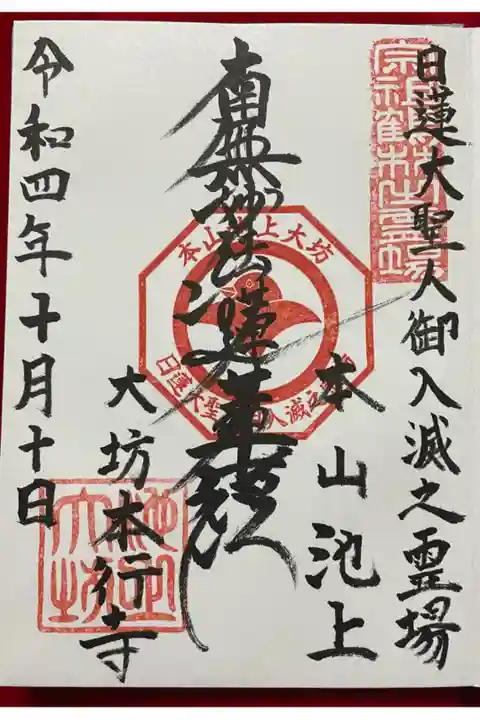 日蓮大聖人御入滅之霊場
本山池上
南無妙法蓮華経
大坊本行寺
令和四年十月十日
本山池上大坊
日蓮大聖人御入滅之霊場
池上大坊